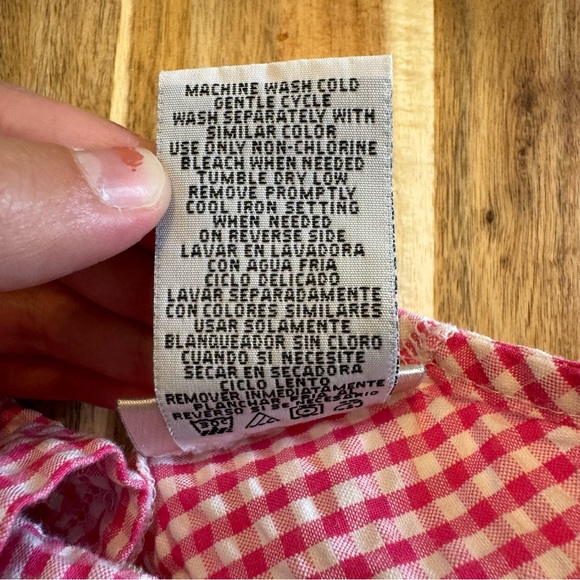 MACHINE WASH COLD
GENTLE CYCLE
WASH SEPARATELY WITH
SIMILAR COLOR
USE ONLY NON-CHLORINE
BLEACH WHEN NEEDED
TUMBLE DRY LOW
REMOVE PROMPTLY
COOL IRON SETTING
WHEN NEEDED
ON REVERSE SIDE
LAVAR EN LAVADORA
CON AGUA FRIA
CICLO DELICADO
LAVAR SEPARADAMENTE
CON COLORES SIMILARES
USAR SOLAMENTE
BLANQUEADOR SIN CLORO
CUANDO SI NECESITE
SECAR EN SECADORA
CICLO LENTO
REMOVER INMEDIATAMENTE
PLANCHAR
REVERSO SI ES NECESARIO